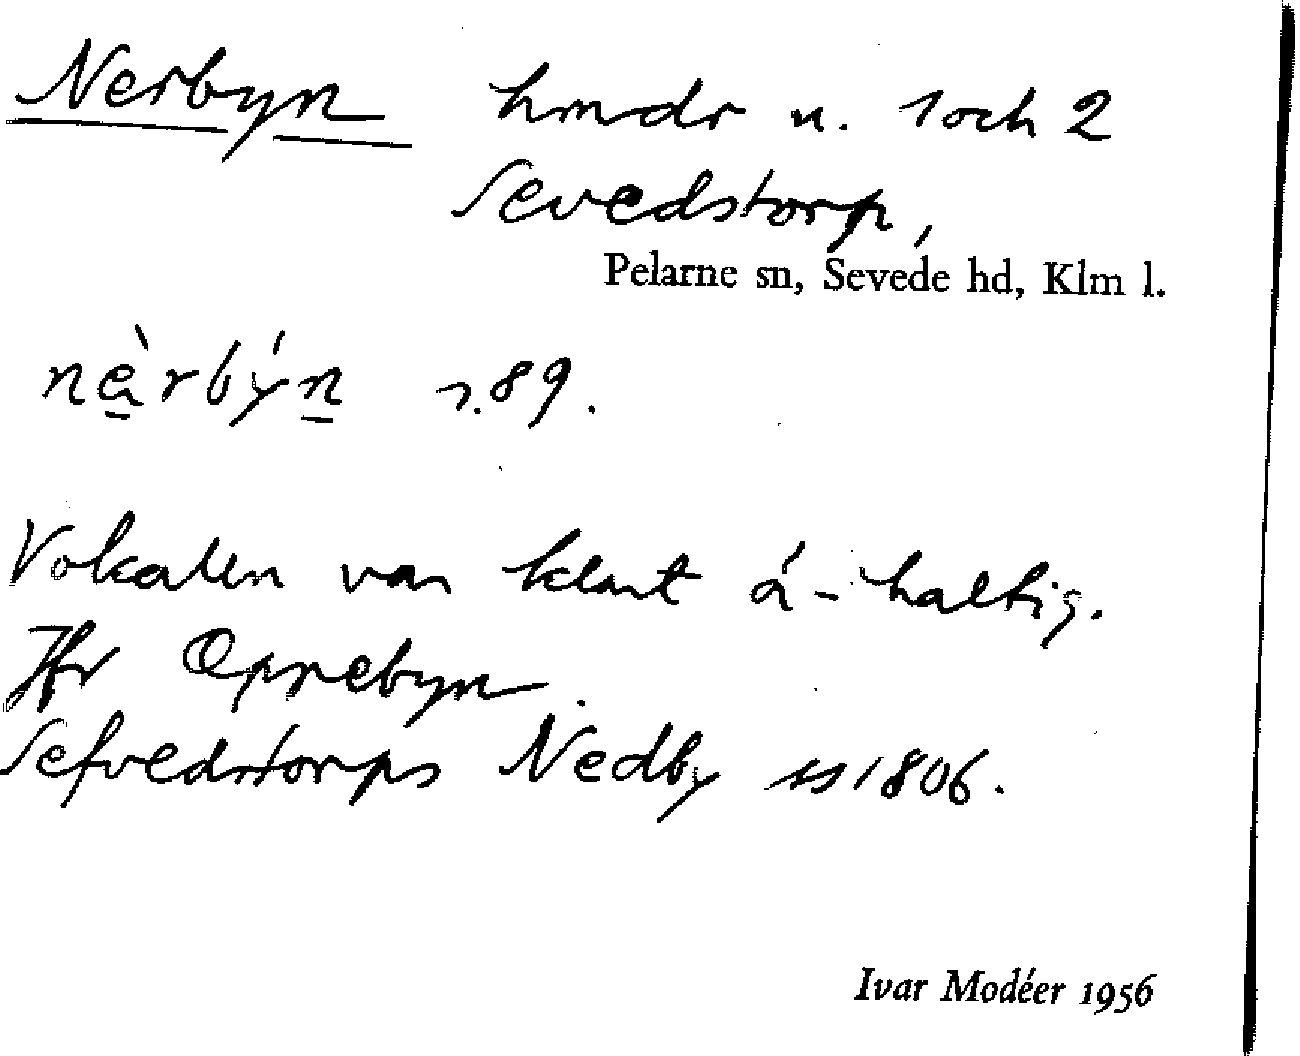 Nerbyn hmdr u. 1 och 2
Sevedstorp,
Pelarne sn, Sevede hd, Klm l.
nèrbýn s. 89.
Vokalen var klart ä-haltig.
Jfr Opprebyn.
Sefvedstorps Nedby ss 1806.
Ivar Modéer 1956